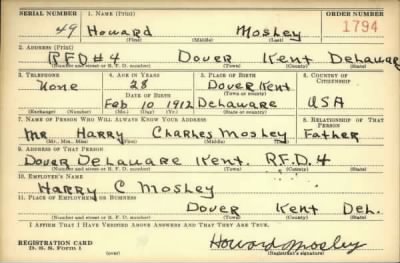 SERIAL NUMBER 1. NAME (Print) ORDER NUMBER
49 Howard Mosley 1794
(First) (Middle) (Last)
2. ADDRESS (Print)
RFD#4 Dover Kent Delaware
(Number and street or R. F. D. number) (Town) (County) (State)
3. TELEPHONE 4. AGE IN YEARS 5. PLACE OF BIRTH 6. COUNTRY OF CITIZENSHIP
None 28 Dover Kent
DATE OF BIRTH (Town or county)
Feb 10 1912 Delaware USA
(Exchange) (Number) (Mo.) (Day) (Yr.) (State or country)
7. NAME OF PERSON WHO WILL ALWAYS KNOW YOUR ADDRESS 8. RELATIONSHIP OF THAT PERSON
Mr Harry Charles Mosley Father
(Mr., Mrs., Miss) (First) (Middle) (Last)
9. ADDRESS OF THAT PERSON
Dover Delaware Kent. R.F.D. 4
(Number and street or R. F. D. number) (Town) (County) (State)
10. EMPLOYER'S NAME
Harry C Mosley
11. PLACE OF EMPLOYMENT OR BUSINESS
Dover Kent Del.
(Number and street or R. F. D. number) (Town) (County) (State)
I AFFIRM THAT I HAVE VERIFIED ABOVE ANSWERS AND THAT THEY ARE TRUE.
REGISTRATION CARD
D. S. S. Form 1 (over) Howard Mosley
(Registrant's signature)